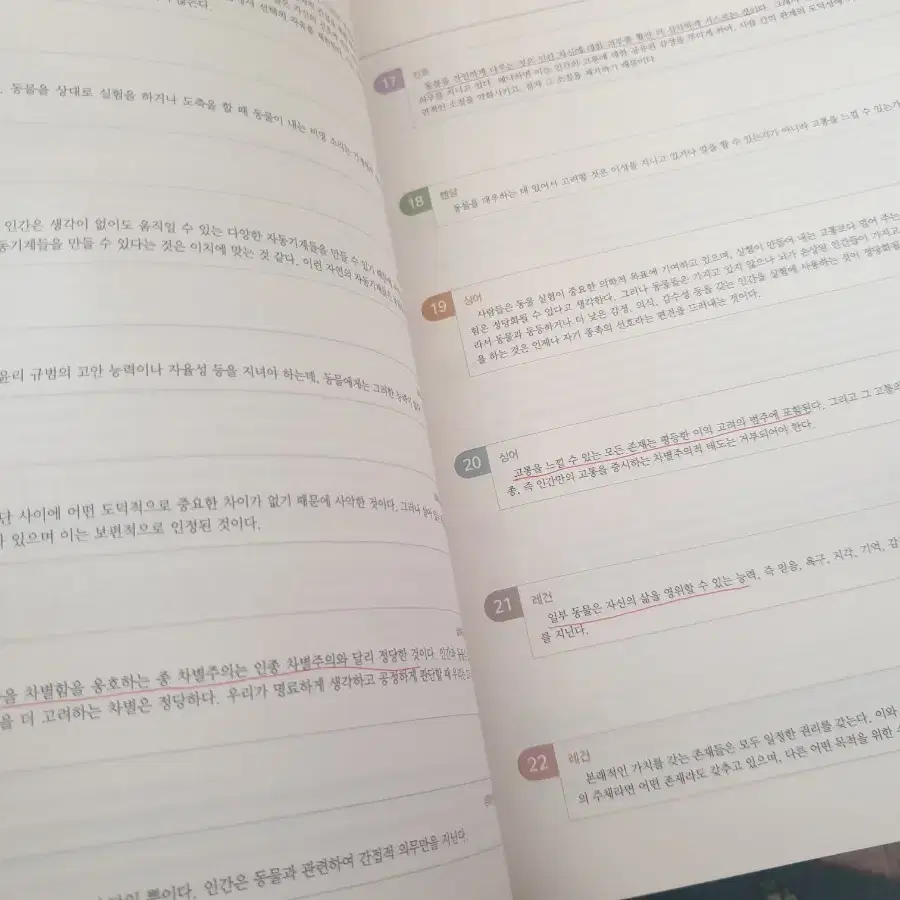 동물을 상대로 실험을 하거나 도축을 할 때 동물이 내는 비명 소리는
인간은 생각이 없어도 움직일 수 있는 다양한 자동기계들을 만들 수 있기
동기계들을 만들 수 있다는 것은 이치에 맞는 것 같다. 이런 자연의
윤리 규범의 고안 능력이나 자율성 등을 지녀야 하는데, 동물에게는 그러한 능력이
단 사이에 어떤 도덕적으로 중요한 차이가 없기 때문에 사악한 것이다. 그러나
있으며 이는 보편적으로 인정된 것이다.
차별함을 옹호하는 종 차별주의는 인종 차별주의와 달리 정당한 것이다.
을 더 고려하는 차별은 정당하다. 우리가 명료하게 생각하고 공정하게 판단할 때
뿐이다. 인간은 동물과 관련하여 간접적 의무만을 지닌다.
17 칸트
동물을 잔인하게 다루는 것은 인간 자신에 대한 의무를
의무를 지니고 있다. 왜냐하면 이는 인간의 고통에 대한 공유된 감정을 무디게 하며, 사람 간의 관계의 도덕성에
소질을 약화시키고, 점차 그 소질을 제거하기 때문이다.
18 벤담
동물을 대우하는 데 있어서 고려할 것은 이성을 지니고 있거나 말을 할 수 있는가가 아니라 고통을 느낄 수 있는가
19 싱어
사람들은 동물 실험이 중요한 의학적 목표에 기여하고 있으며, 실험이 만들어 내는 고통보다 덜어 주는
험은 정당화될 수 있다고 생각한다. 그러나 동물들은 가지고 있지 않으나 뇌가 손상된 인간들이 가지고
라서 동물과 동등하거나 더 낮은 감정, 의식, 감수성 등을 갖는 인간을 실험에 사용하는 것이 정당화될
을 하는 것은 언제나 자기 종족의 선호라는 편견을 드러내는 것이다.
20 싱어
고통을 느낄 수 있는 모든 존재는 평등한 이익 고려의 범주에 포함된다. 그리고 그 고통의
종, 즉 인간만의 고통을 중시하는 차별주의적 태도는 거부되어야 한다.
21 레건
일부 동물은 자신의 삶을 영위할 수 있는 능력, 즉 믿음, 욕구, 지각, 기억, 감
를 지닌다.
22 레건
본래적인 가치를 갖는 존재들은 모두 일정한 권리를 갖는다. 이와
의 주체라면 어떤 존재라도 갖추고 있으며, 다른 어떤 목적을 위한